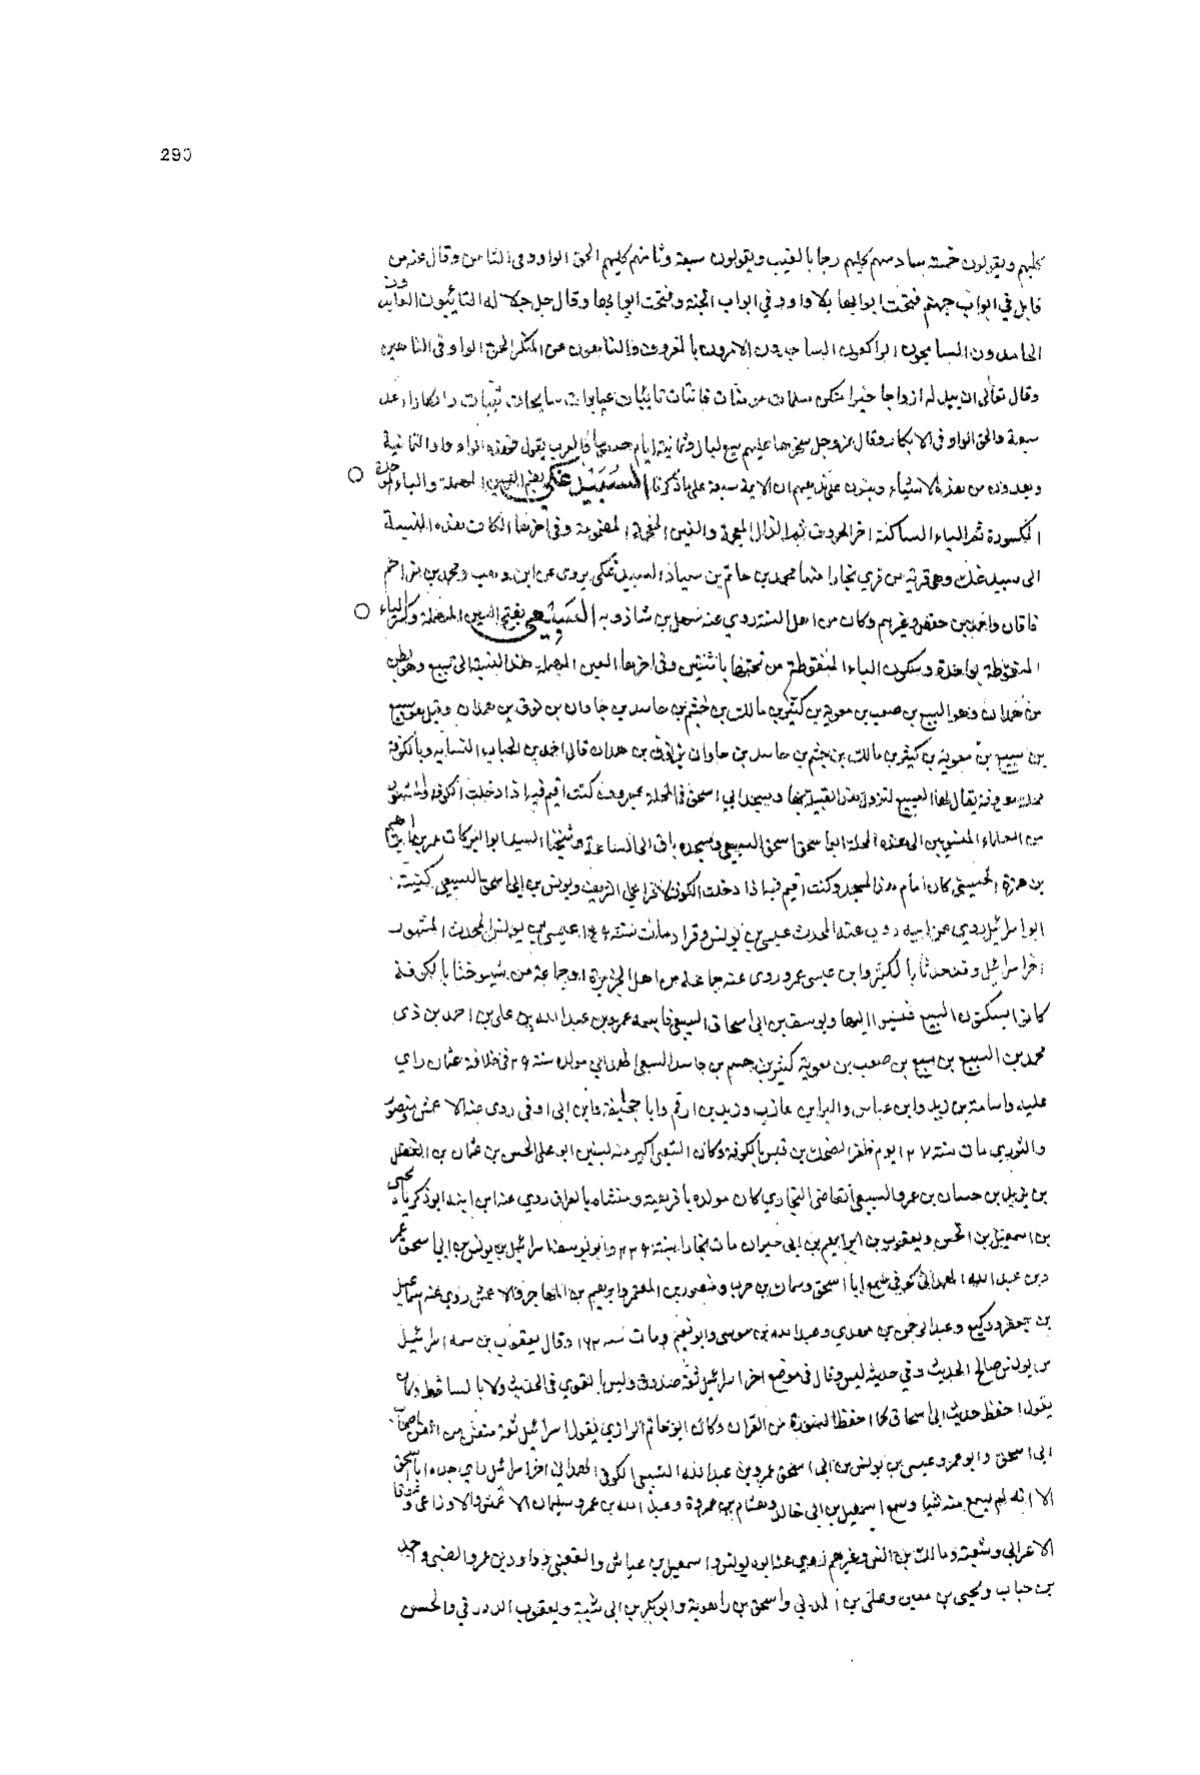 290
كلبهم ويقولون خمسة سادسهم كلبهم رجما بالغيب ويقولون سبعة وثامنهم كلبهم الحق الواو في الثامن وقال عز من
قابل في ابواب جهنم فتحت ابوابها بلا واو وفي ابواب الجنة وفتحت ابوابها وقال جل جلاله التائبون العابدون
الحامدون السايحون الراكعون الساجدون الامرون بالمعروف والناهون عن المنكر الحق الواو في الناهين
وقال تعالى ان يبدله ازواجا خيرا منكن مسلمات مومنات قانتات تايبات عابدات سايحات ثيبات وابكارا عد
سبعة والحق الواو في الابكار وقال عز وجل سخرها عليهم سبع ليال وثمانية ايام حسوما فالعرب يقول هذه الواو واو الثمانية
ويعدونه من هذه الاشياء ويبنون على مذهبهم ان الايمة سبعة على ما ذكرنا السبيذغكي بضم السين المهملة والباء الموحدة
المكسورة ثم الياء الساكنة اخر الحروف ثم الذال المعجمة والغين المعجمة المضمومة وفي اخرها الكاف هذه النسبة
الى سبيذغك وهي قرية من قرى بخارا منها محمد بن حاتم بن سياذ السبيذغكي يروى عن ابن وهب ومحمد بن مزاحم
خاقان واحمد بن حفص وغيرهم وكان من اهل السنة روي عنه سهل بن شاذويه السبيعي بفتح السين المهملة وكسر الباء
المنقوطة بواحدة وسكون الياء المنقوطة من تحتها باثنتين وفي اخرها العين المهملة هذا النسبة الى سبيع وهو بطن
من همدان وهو السبيع بن صعب بن معوية بن كثير بن مالك بن جشم بن حاسد بن جاوان بن نوف بن همدان وقيل هو سبيع
بن سبيع بن معوية بن كثير بن مالك بن جشم بن حاسد بن جاوان بن نوف بن همدان قال احمد بن الحباب النسابه وبالكوفة
محلة معروفة يقال لها السبيع لنزول هذه القبيلة بها ومسجد ابي اسحق في المحلة معروف كنت اقيم فيه اذا دخلت الكوفة والمشهور
من العلماء المنسوبين الى هذه المحلة ابا اسحق السبيعي ومسجده باق الى الساعة وشيخنا السيد ابو البركات عمر بن ابراهيم
بن حمزة الحسيني كان امام هذا المسجد وكنت اقيم فيه اذا دخلت الكوفة لاقرا على الشريف ويونس بن ابي اسحق السبيعي كنيته
ابو اسرائيل يروي عن ابيه روى عنه المحدث عيسى بن يونس وقراد مات سنة عيسى بن يونس المحدث المشهور
اخو اسرائيل وقد حدثنا بالكثير وابن عيسى عمرو روى عنه جماعة من اهل الجزيرة وجماعة من شيوخنا بالكوفة
كانوا يسكنون السبيع فنسبوا اليها ويوسف بن ابي اسحاق السبيعي فاسمه عمرو بن عبد الله بن علي بن احمد بن ذي
محمد بن السبيع بن سبيع بن صعب بن معوية كثير بن جسم بن حاسد السبيعي الهمداني مولده سنة ٢٩ في خلافة عثمان راي
عليا واسامة بن زيد وابن عباس والبرا بن عازب وزيد بن ارقم وابا جحيفة وابن ابي اوفى روى عنه الاعمش ومنصور
والثوري مات سنة ١٢٧ يوم ظفر الضحاك بن قيس بالكوفة وكان الشعبي اكبر منه بسنتين ابو علي الحسن بن عثمان بن الفضل
بن يزيل بن حسان بن عمرو السبيعي القاضي البخاري كان مولده بافريقية ومنشاه بالعراق روي عنه ابن ابنه ابو ذكريا يحيى
بن اسمعيل بن الحسن ويعقوب بن ابراهيم بن ابي خيران مات ببخارا سنة ٢٣٩ وابو يوسف اسرائيل بن يونس بن ابي اسحق عمر
وبن عبد الله الهمداني كوفي سمع ابا اسحق وسماك بن حرب ومنصور بن المعتمر وابرهيم بن المهاجر والاعمش روي عنه اسماعيل
بن جعفر ووكيع وعبد الرحمن بن مهدي وعبد الله بن موسى وابو نعيم ومات سنة ١٦٢ وقال يعقوب بن سمه اسرائيل
بن يونس صالح الحديث وفي حديثه لين وقال في موضع اخر اسرائيل ثقة صدوق وليس بالقوي في الحديث ولا بالساقط وكان
يقول احفظ حديث ابي اسحاق كما احفظ السورة من القران وكان ابو حاتم الرازي يقول اسرائيل ثقة متقن من اتقن اصحاب
ابي اسحق وابو عمرو عيسى بن يونس بن ابي اسحق عمرو بن عبد الله السبيعي الكوفي الهمداني اخو اسرائيل راي جده ابا اسحق
الا انه لم يسمع منه شيا وسمع اسمعيل بن ابي خالد وهشام بن عروة وعبيد الله بن عمرو وسليمان الاعمش والاوزاعي وعوفا
الاعرابي وشعبة ومالك بن انس وغيرهم روي عنه ابوه يونس واسمعيل بن عياش والقعنبي وداود بن عمرو الضبي واحمد
بن جناب ويحيى بن معين وعلي بن المديني واسحق بن راهوية وابو بكر بن ابي شيبة ويعقوب الدورقي والحسن